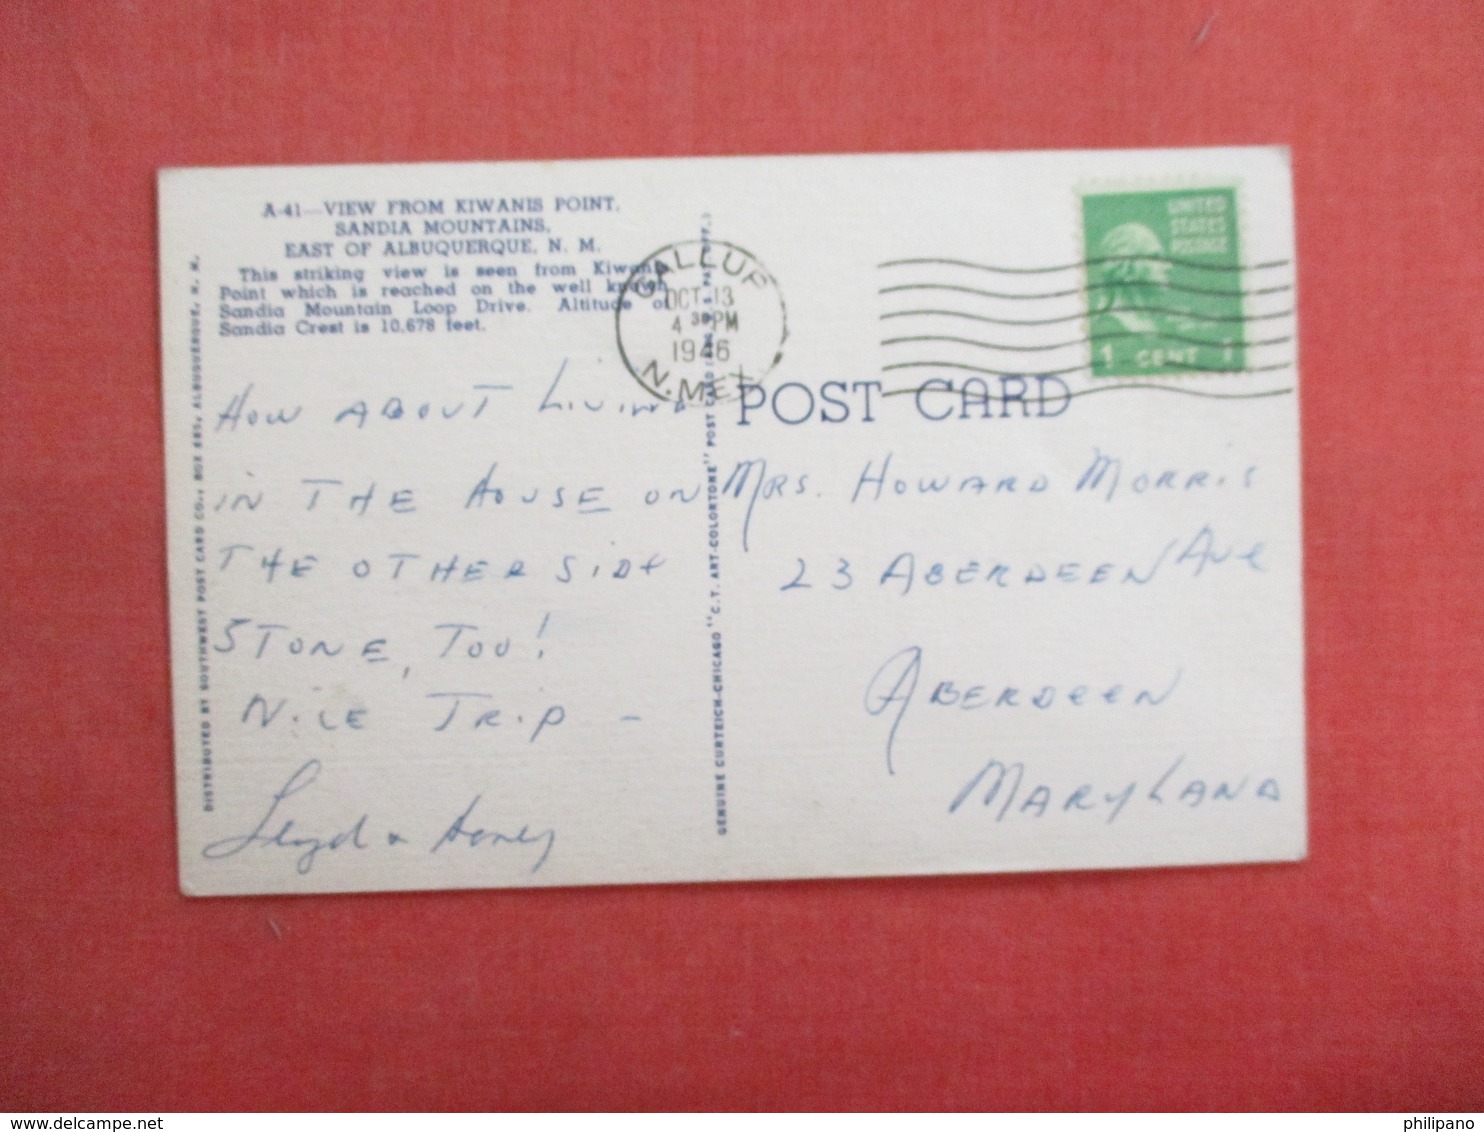 A-41—VIEW FROM KIWANIS POINT,
SANDIA MOUNTAINS,
EAST OF ALBUQUERQUE, N. M.
This striking view is seen from Kiwanis
Point which is reached on the well known
Sandia Mountain Loop Drive. Altitude of
Sandia Crest is 10,678 feet.
HOW ABOUT LIVING
IN THE HOUSE ON
THE OTHER SIDE
STONE, TOO!
NICE TRIP —
Lloyd & Honey
DISTRIBUTED BY SOUTHWEST POST CARD CO., BOX 685, ALBUQUERQUE, N. M.
GENUINE CURTEICH-CHICAGO "C.T. ART-COLORTONE" POST CARD (REG. U.S. PAT. OFF.)
GALLUP
OCT 13
4 30 PM
1946
N.MEX.
UNITED
STATES
POSTAGE
1 CENT 1
POST CARD
MRS. HOWARD MORRIS
23 ABERDEEN AVE
ABERDEEN
MARYLAND
philipano